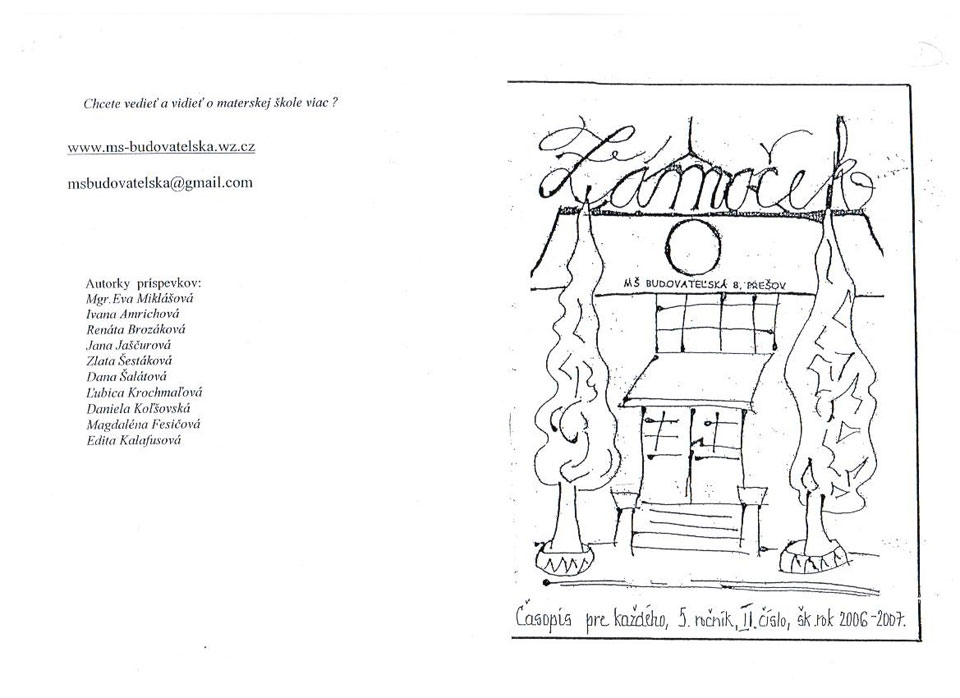 Chcete vedieť a vidieť o materskej škole viac ?
www.ms-budovatelska.wz.cz
msbudovatelska@gmail.com
Autorky príspevkov:
Mgr.Eva Miklášová
Ivana Amrichová
Renáta Brozáková
Jana Jaščurová
Zlata Šestáková
Dana Šalátová
Ľubica Krochmaľová
Daniela Koľšovská
Magdaléna Fesičová
Edita Kalafusová
Zámoček
MŠ BUDOVATEĽSKÁ 8, PREŠOV
Časopis pre každého, 5. ročník, II. číslo, šk.rok 2006-2007.